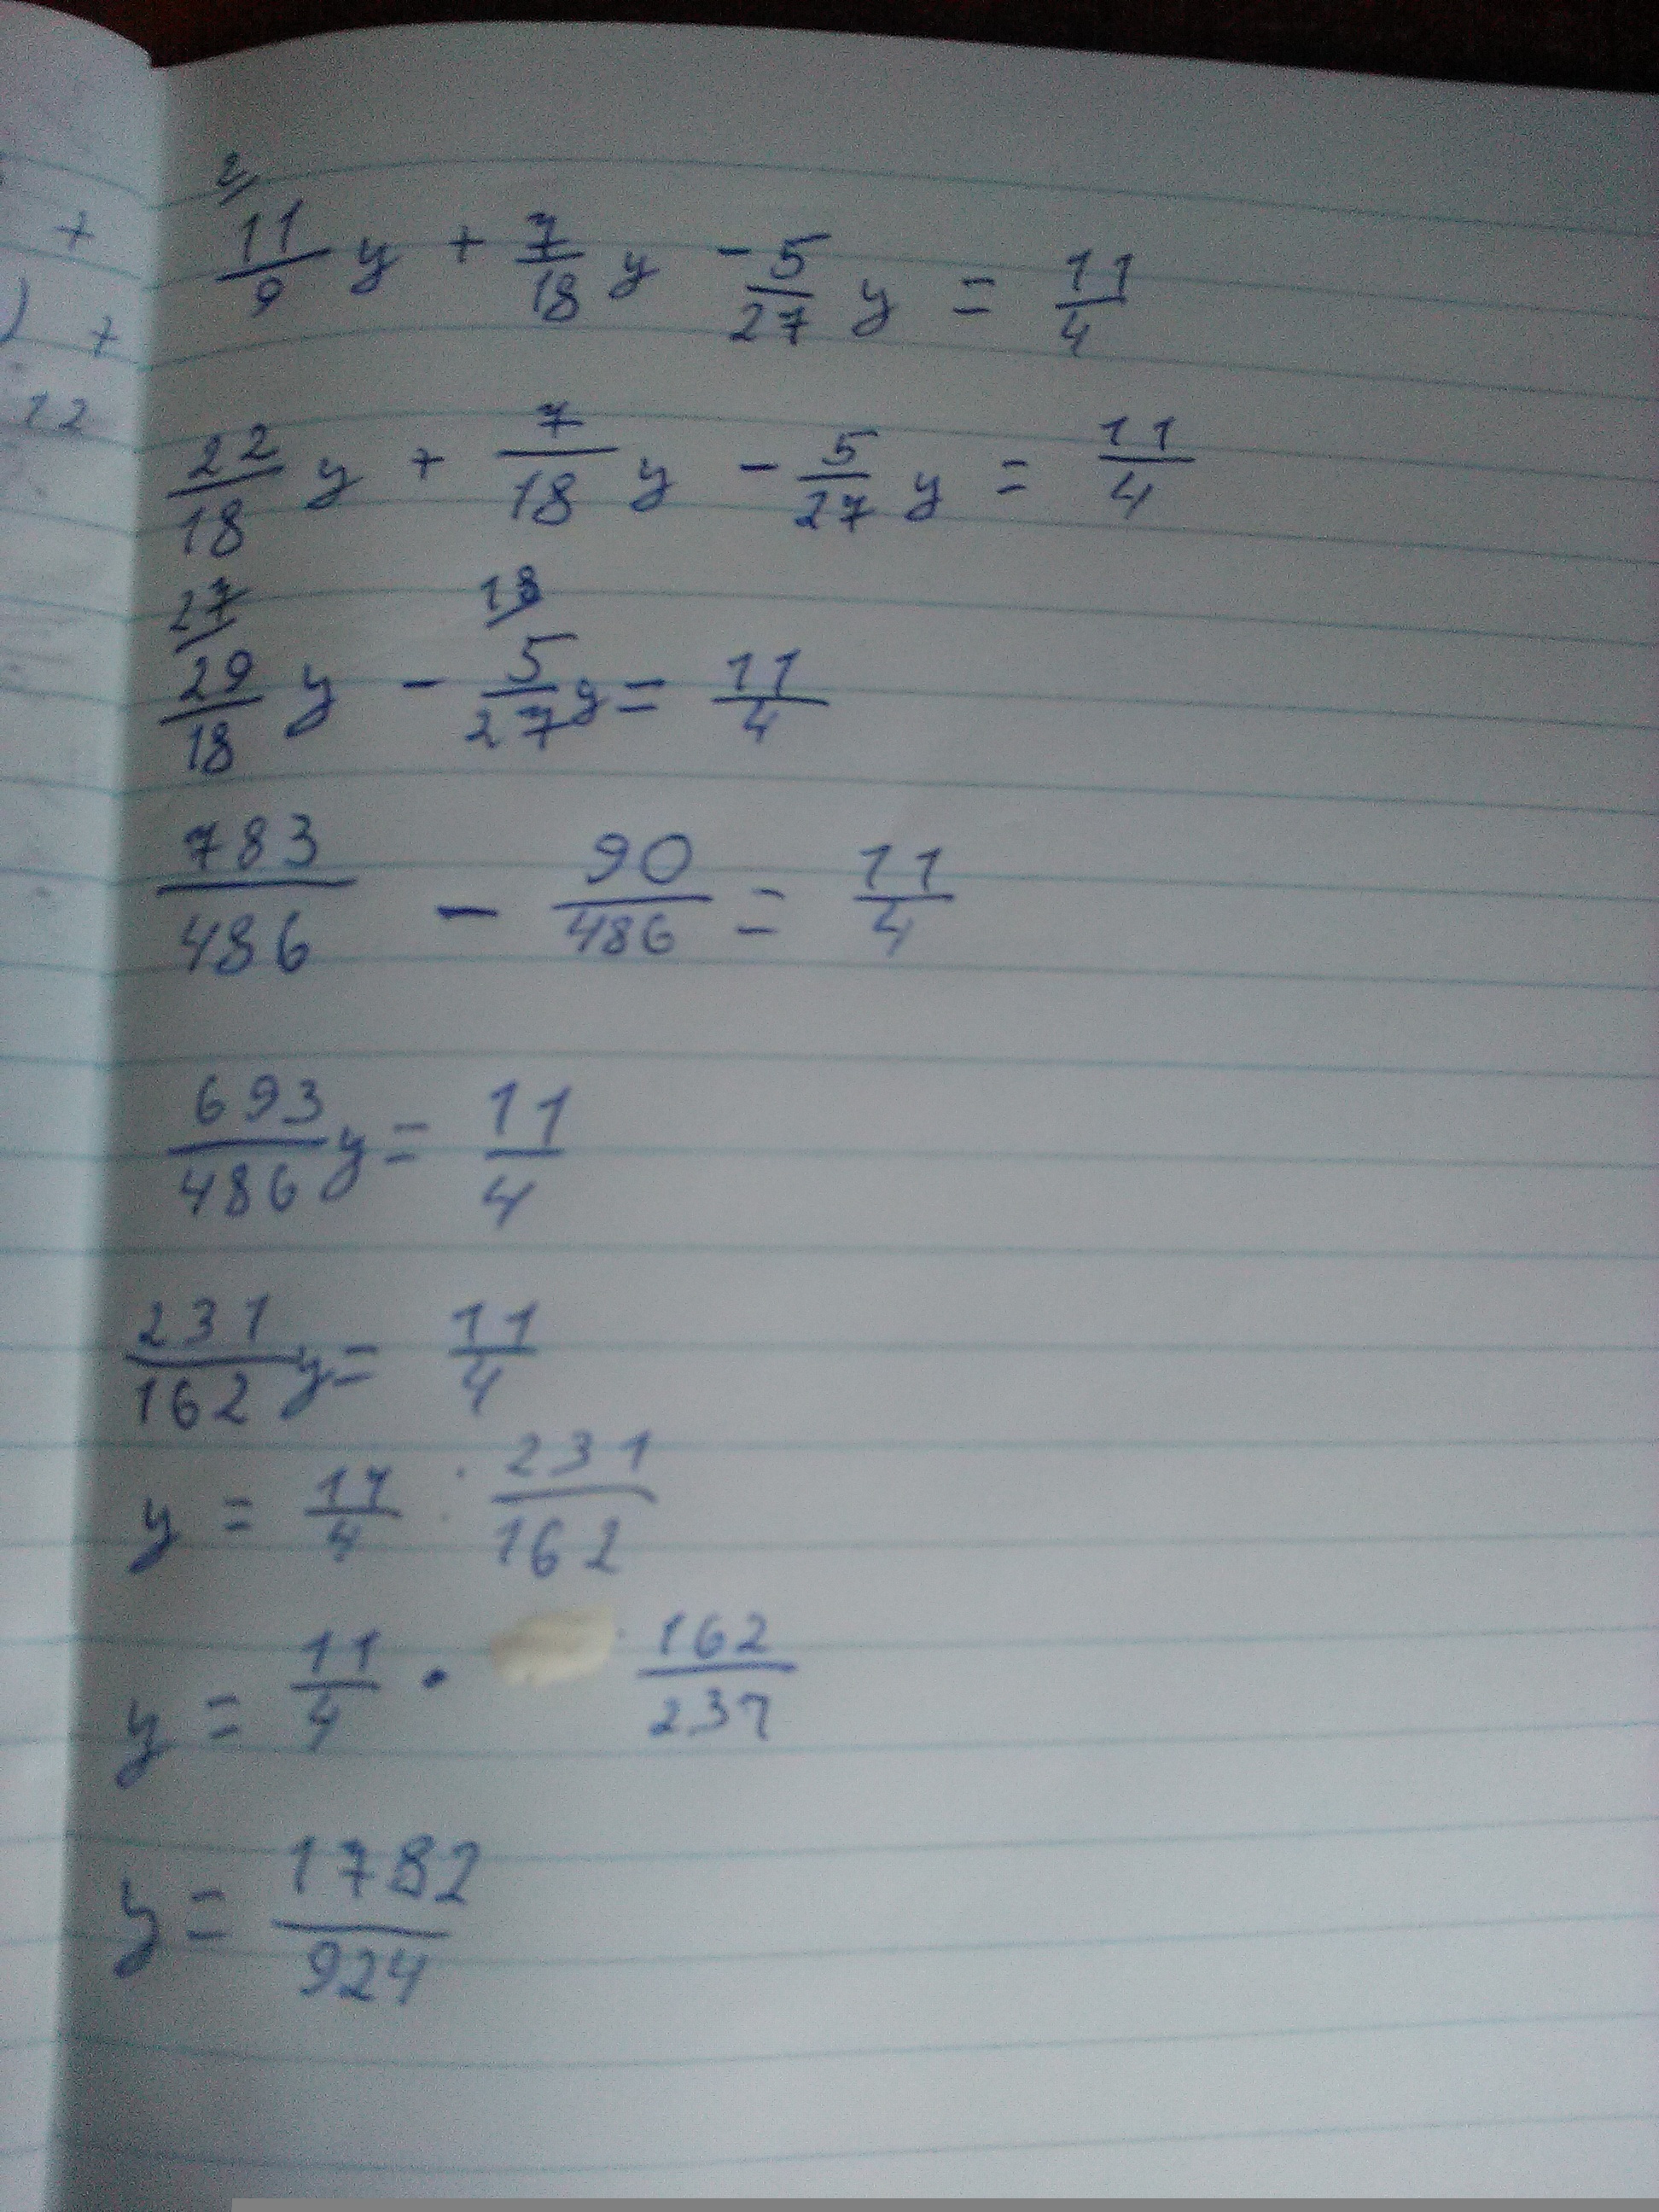 +
) +
12
2/
11/9 y + 7/18 y - 5/27 y = 11/4
22/18 y + 7/18 y - 5/27 y = 11/4
27/ 18/
29/18 y - 5/27 y = 11/4
783/486 - 90/486 = 11/4
693/486 y = 11/4
231/162 y = 11/4
y = 11/4 : 231/162
y = 11/4 · 162/231
y = 1782/924